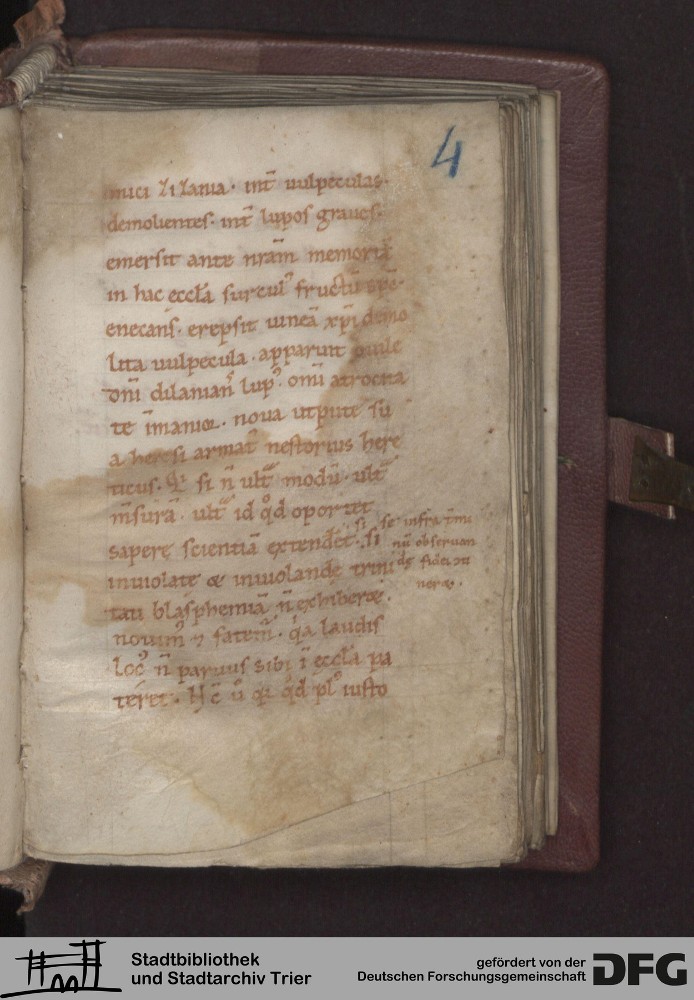 4
mici zizania · int̄ uulpeculas·
demolientes· int̄ lupos graues·
emersit ante nr̄am memoriā
in hac eccl̄a surcul᷒ fructū spē·
enecans· erepsit uineā xp̄i demo
lita uulpecula · apparuit ouile
dn̄i dilanians lup᷒· omī atrocita
te īmanior · noua utpute su
a heresi armat᷒ nestorius here
ticus· si n̄ ult̄ modū· ult̄
m̄surā· ult̄ id qd̄ oportet
sapere scientiā extenderet· si
si se infra t̄mi
nū obseruan
dę fidei
inuiolatę & inuiolandę trini
tati blasphemiā n̄ exhiberet·
nouim᷒ ⁊ fatem̄· qa laudis
loc᷒ n̄ paruus sibi ī eccl̄a pa
teret· qd̄ pl᷒ iusto
Stadtbibliothek
und Stadtarchiv Trier
gefördert von der
Deutschen Forschungsgemeinschaft
DFG